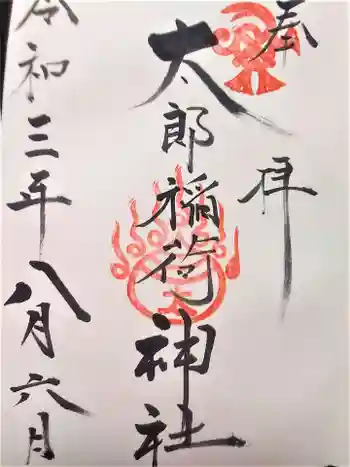 奉拝
太郎稲荷神社
令和三年八月六日